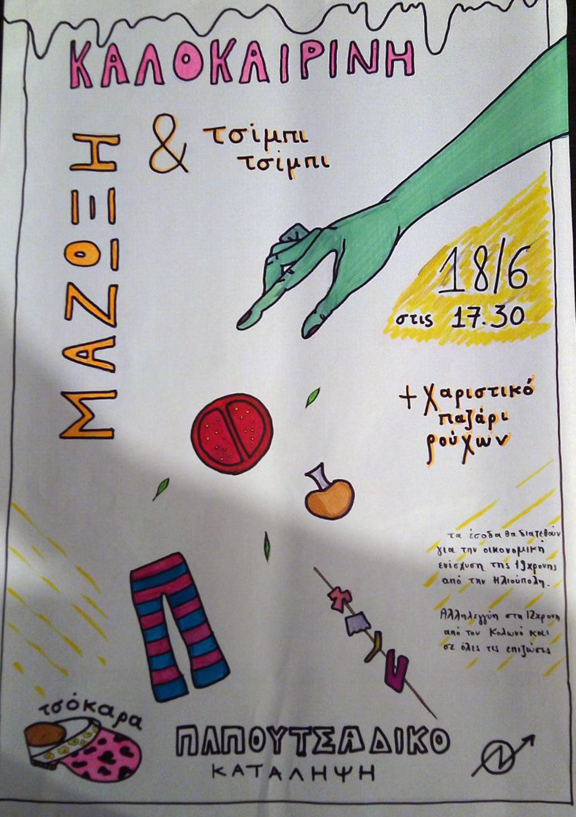 ΚΑΛΟΚΑΙΡΙΝΗ
ΜΑΖΩΞΗ
& τσίμπι
τσίμπι
18/6
στις 17.30
+ Χαριστικό
παζάρι
ρούχων
τα έσοδα θα διατεθούν
για την οικονομική
ενίσχυση της 19χρονης
από την Ηλιούπολη.
Αλληλεγγύη στη 12χρονη
από τον Κολωνό και
σε όλες τις επιζώσες
τσόκαρα
ΠΑΠΟΥΤΣΑΔΙΚΟ
ΚΑΤΑΛΗΨΗ